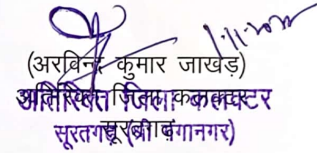 1.11.2022
(अरविन्द कुमार जाखड़)
अतिरिक्त जिला कलक्टर
सूरतगढ़ (श्री गंगानगर)